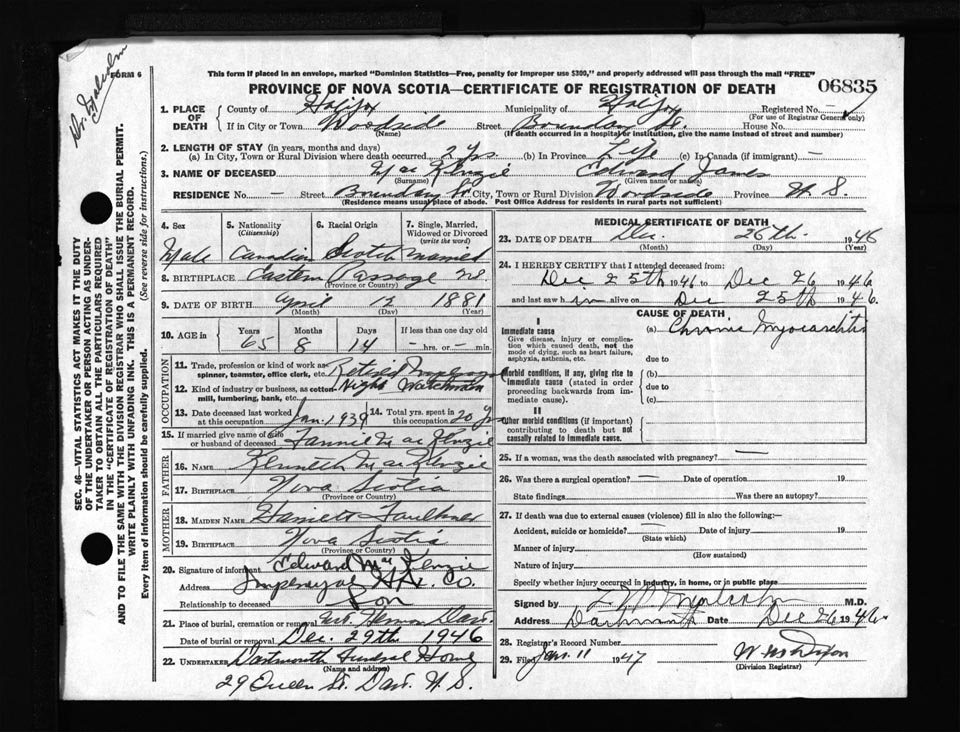 Dr. Malcolm
FORM 6
This form if placed in an envelope, marked "Dominion Statistics—Free, penalty for improper use $300," and properly addressed will pass through the mail "FREE"
PROVINCE OF NOVA SCOTIA—CERTIFICATE OF REGISTRATION OF DEATH
06835
1. PLACE OF DEATH County of Halifax Municipality of Halifax Registered No. —
(For use of Registrar General only)
If in City or Town Woodside Street Boundary St. House No.
(Name) (If death occurred in a hospital or institution, give the name instead of street and number)
2. LENGTH OF STAY (in years, months and days)
(a) In City, Town or Rural Division where death occurred 2 yrs. (b) In Province Life (c) In Canada (if immigrant) —
3. NAME OF DECEASED MacKenzie Edward James
(Surname) (Given name or names)
RESIDENCE No. — Street Boundary St. City, Town or Rural Division Woodside Province N. S.
(Residence means usual place of abode. Post Office Address for residents in rural parts not sufficient)
4. Sex 5. Nationality (Citizenship) 6. Racial Origin 7. Single, Married, Widowed or Divorced (write the word)
Male Canadian Scotch married
8. BIRTHPLACE Eastern Passage NS
(Province or Country)
9. DATE OF BIRTH April 12 1881
(Month) (Day) (Year)
10. AGE in Years Months Days If less than one day old
65 8 14 — hrs. or — min.
OCCUPATION
11. Trade, profession or kind of work as spinner, teamster, office clerk, etc. Retired Imperoyal
12. Kind of industry or business, as cotton mill, lumbering, bank, etc. Night Watchman
13. Date deceased last worked at this occupation Jan. 1939 14. Total yrs. spent in this occupation 20 yrs
15. If married give name of wife or husband of deceased Fannie MacKenzie
FATHER
16. NAME Kenneth MacKenzie
17. BIRTHPLACE Nova Scotia
(Province or Country)
MOTHER
18. MAIDEN NAME Harriett Faulkner
19. BIRTHPLACE Nova Scotia
(Province or Country)
20. Signature of informant Edward MacKenzie
Address Imperoyal Hfx. Co.
Relationship to deceased Son
21. Place of burial, cremation or removal Mt. Hermon Dart.
Date of burial or removal Dec. 29th 1946
22. UNDERTAKER Dartmouth Funeral Home
(Name and address)
29 Queen St. Dart. N. S.
MEDICAL CERTIFICATE OF DEATH
23. DATE OF DEATH Dec. 26th. 1946
(Month) (Day) (Year)
24. I HEREBY CERTIFY that I attended deceased from:
Dec 25th 1946 to Dec 26 1946
and last saw him alive on Dec 25th 1946.
CAUSE OF DEATH
I
Immediate cause (a) Chronic Myocarditis
Give disease, injury or complication which caused death, not the mode of dying, such as heart failure, asphyxia, asthenia, etc.
due to
Morbid conditions, if any, giving rise to immediate cause (stated in order proceeding backwards from immediate cause). (b)
due to
(c)
II
Other morbid conditions (if important) contributing to death but not causally related to immediate cause.
25. If a woman, was the death associated with pregnancy? —
26. Was there a surgical operation? — Date of operation 19
State findings Was there an autopsy?
27. If death was due to external causes (violence) fill in also the following:—
Accident, suicide or homicide? — Date of injury 19
(State which)
Manner of injury
(How sustained)
Nature of injury
Specify whether injury occurred in industry, in home, or in public place
Signed by Malcolm M.D.
Address Dartmouth Date Dec 26 1946
28. Registrar's Record Number
29. Filed Jan. 11 1947
(Division Registrar)
SEC. 46—VITAL STATISTICS ACT MAKES IT THE DUTY
OF THE UNDERTAKER OR PERSON ACTING AS UNDER-
TAKER TO OBTAIN ALL THE PARTICULARS REQUIRED
IN THE "CERTIFICATE OF REGISTRATION OF DEATH"
AND TO FILE THE SAME WITH THE DIVISION REGISTRAR WHO SHALL ISSUE THE BURIAL PERMIT.
WRITE PLAINLY WITH UNFADING INK. THIS IS A PERMANENT RECORD.
Every item of information should be carefully supplied. (See reverse side for instructions.)